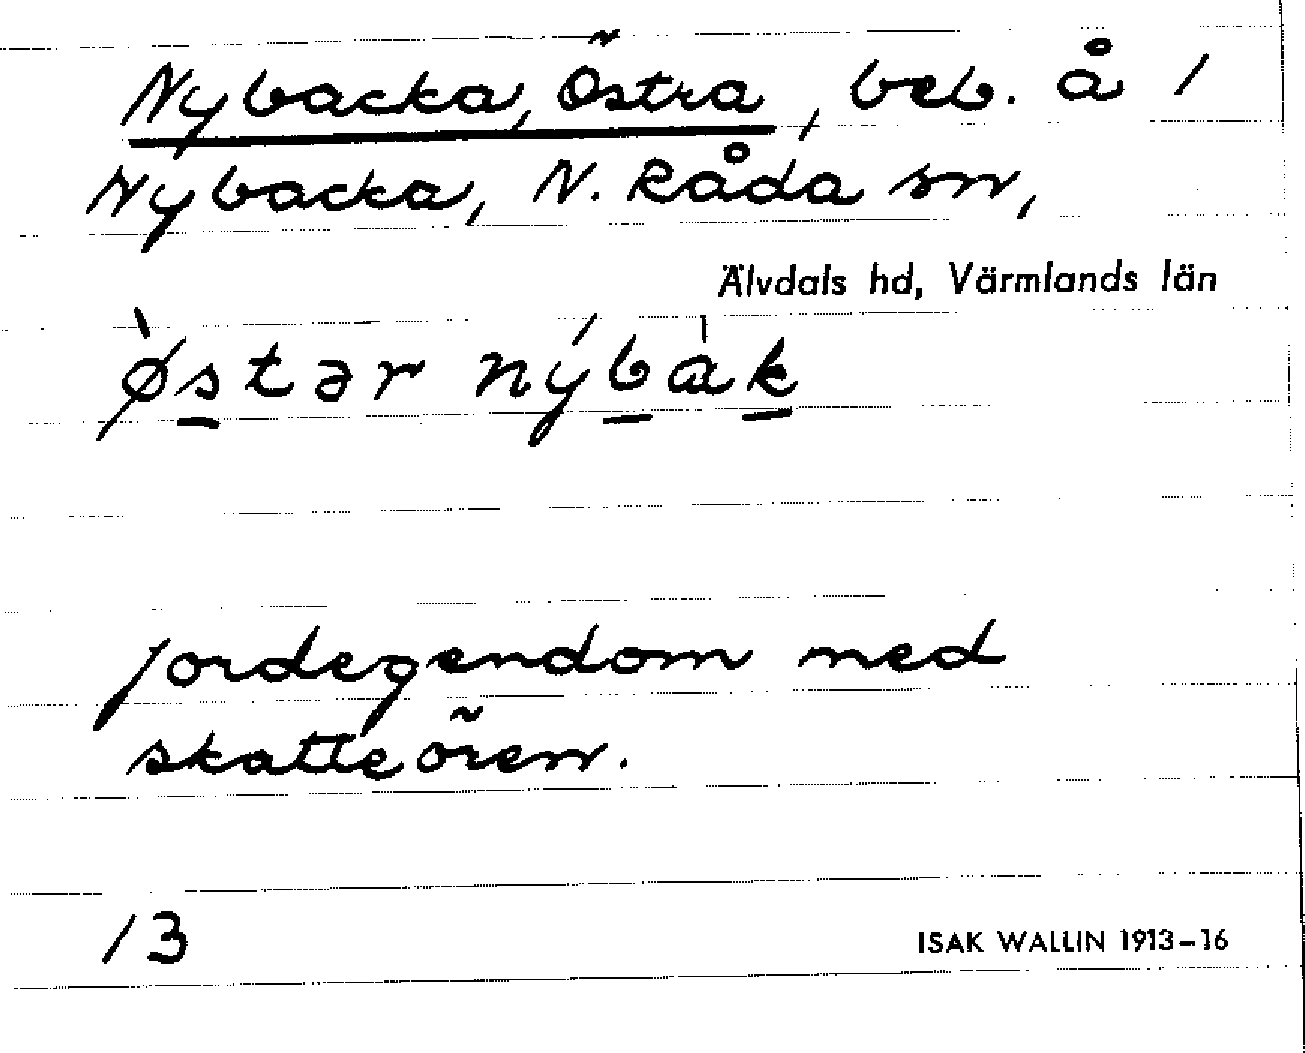 Nybacka, Östra, beb. å 1
Nybacka, N. Råda sn,
Älvdals hd, Värmlands län
ø̀stər nýbàk
jordegendom med
skatteören.
13
ISAK WALLIN 1913–16